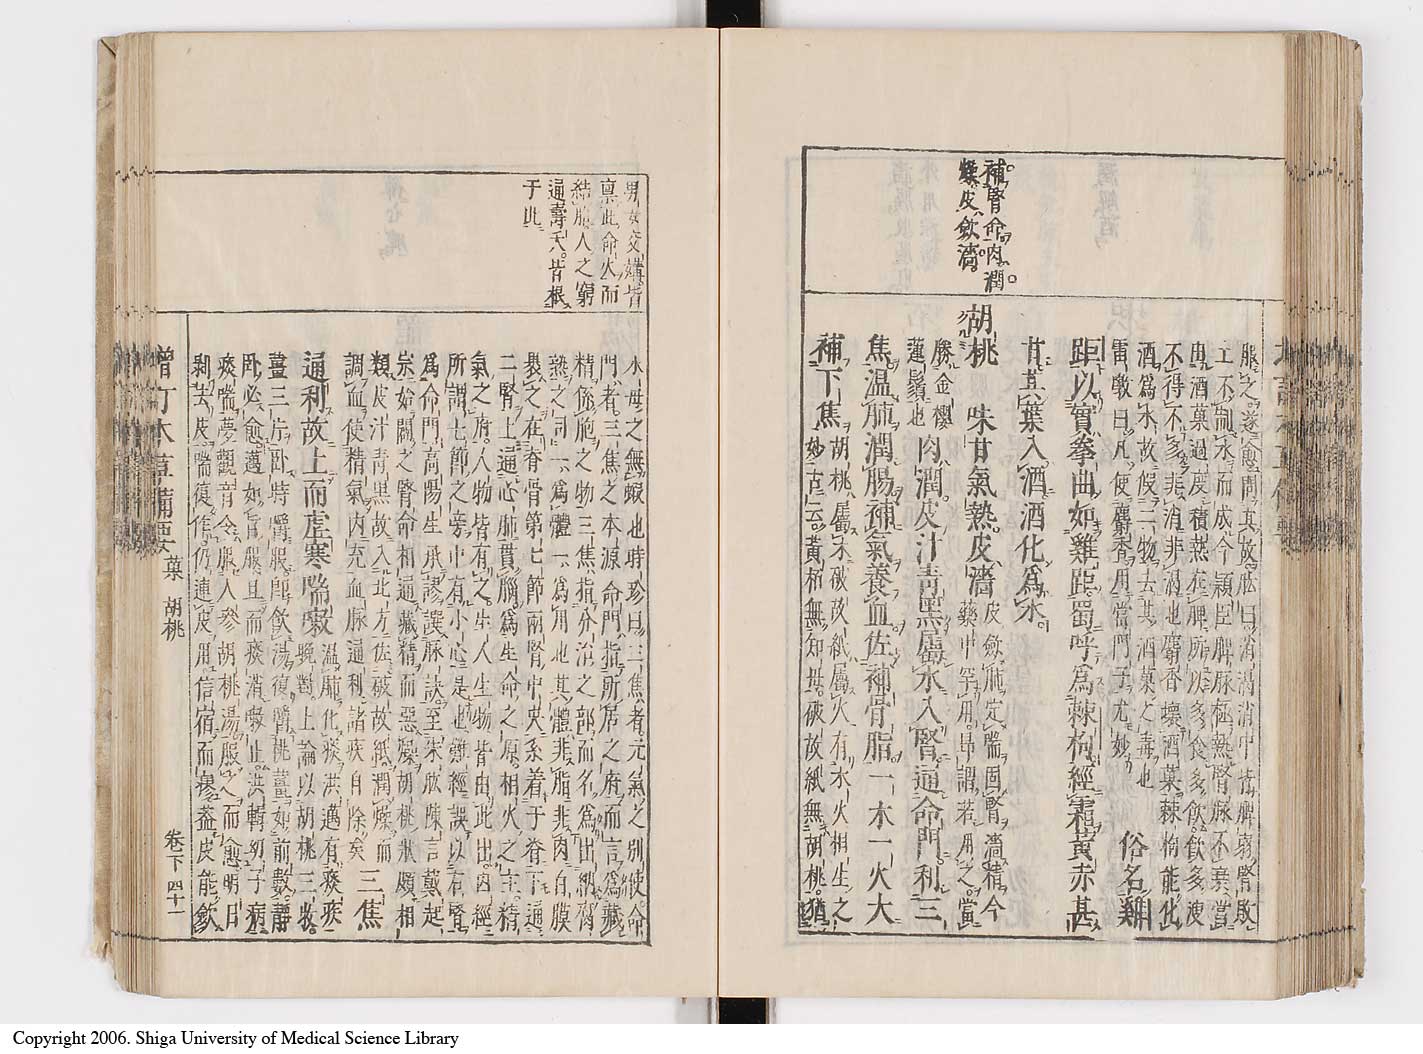 補腎命肉潤。
燥皮斂濇。
服之遂愈問其故。肱曰消渴消中皆脾弱腎敗
土不制水而成今穎臣脾脉極熱腎脉不衰當
由酒菓過度積熱在脾所以多食多飲飲多溲
不得不多。非消非渴也麝香壞酒菓棘枸能化
酒為水故假二物去其酒菓之毒也
雷斅曰凡使麝香用當門子尤妙 俗名雞
距以實拳曲如雞距蜀呼為棘枸經霜黃赤甚
甘其葉入酒酒化為水。
胡桃 味甘氣熱。皮濇 皮斂肺定喘固腎濇精今
藥中罕用昂謂若用之當
勝金櫻
蓮鬚也 肉潤。皮汁青黑屬水入腎通命門利三
焦溫肺潤腸補氣養血佐補骨脂一木一火大
補下焦 胡桃屬木破故紙屬火有木火相生之
妙古云。黃柏無知母。破故紙無胡桃。猶
男女交媾皆
稟此命火而
結胎人之窮
通壽夭。皆根
于此
水母之無蝦也時珍曰三焦者元氣之別使命
門者。三焦之本源命門指所居之府而言為藏
精係胞之物三焦指分治之部而名為出納腐
熟之司一為體一為用也其體非脂非肉白膜
裹之在脊骨第七節兩腎中央系着于脊下通
二腎上通心肺貫腦為生命之原相火之主精
氣之府。人物皆有之。生人生物皆由此出內經
所謂七節之旁中有小心是也難經誤以右腎
為命門高陽生承謬誤脉訣至朱肱陳言戴起
宗始闢之腎命相通藏精而惡燥胡桃狀頗相
類皮汁青黑故入北方佐破故紙潤燥而
調血使精氣內充血脉通利諸疾自除矣 三焦
通利故上而虛寒喘嗽 溫肺化痰洪邁有痰疾
晚對上諭以胡桃三枚
薑三片臥時嚼服即飲湯復嚼桃薑如前數靜
臥必愈邁如旨服旦而痰消嗽止洪輯幼子病
痰喘夢觀音令服人參胡桃湯服之而愈明日
剝去皮喘復作仍連皮用信宿而瘳蓋皮能斂
增訂本草備要 菓 胡桃 卷下 四十一
Copyright 2006. Shiga University of Medical Science Library